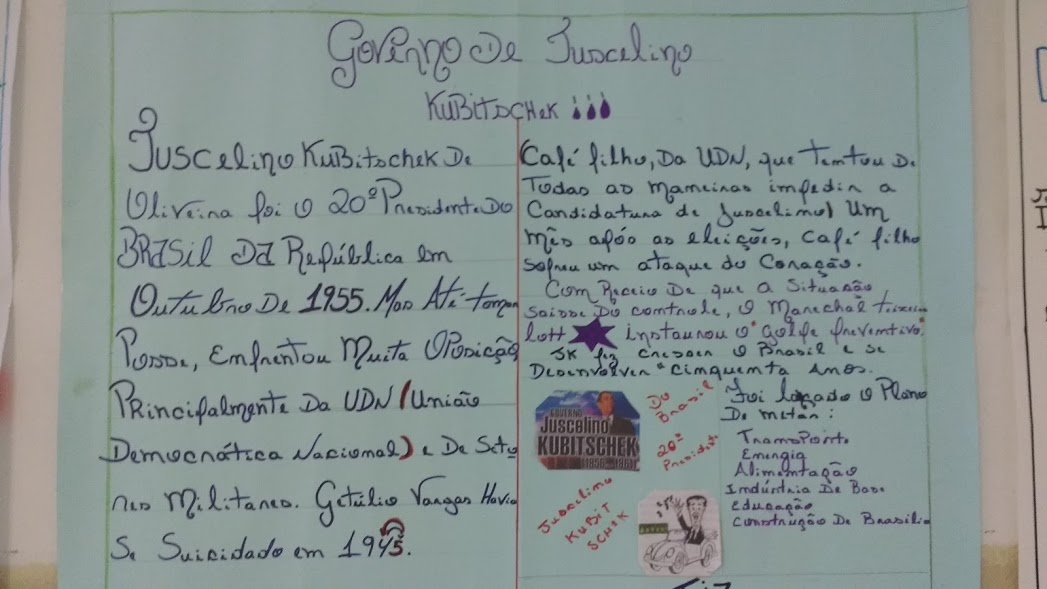 Governo De Juscelino
KUBITSCHEK
Juscelino KuBitschek De
Oliveira foi O 20º Presidente Do
BRASil DA República em
Outubro De 1955. Mas Até tomar
Posse, Enfrentou Muita Oposição
Principalmente Da UDN (União
Democrática Nacional) e De Seto
res Militares. Getúlio Vargas Havia
Se Suicidado em 1945.
Café filho, Da UDN, que Tentou De
Todas as maneiras impedir a
Candidatura de Juscelino) Um
mês após as eleições, Café filho
sofreu um ataque do Coração.
Com Receio De que a Situação
saisse Do controle, O Marechal teixeira
lott instaurou o "golpe preventivo".
JK fez crescer O Brasil e se
Desenvolver "cinquenta anos.
GOVERNO
Juscelino
KUBITSCHEK
(1956-1961)
Do
Brasil
20º
Presidente
Juscelino
KuBiT
SCHEK
Foi lançado O Plano
De metas:
Transporte
Energia
Alimentação
Indústria De Base
Educação
Construção De Brasilia